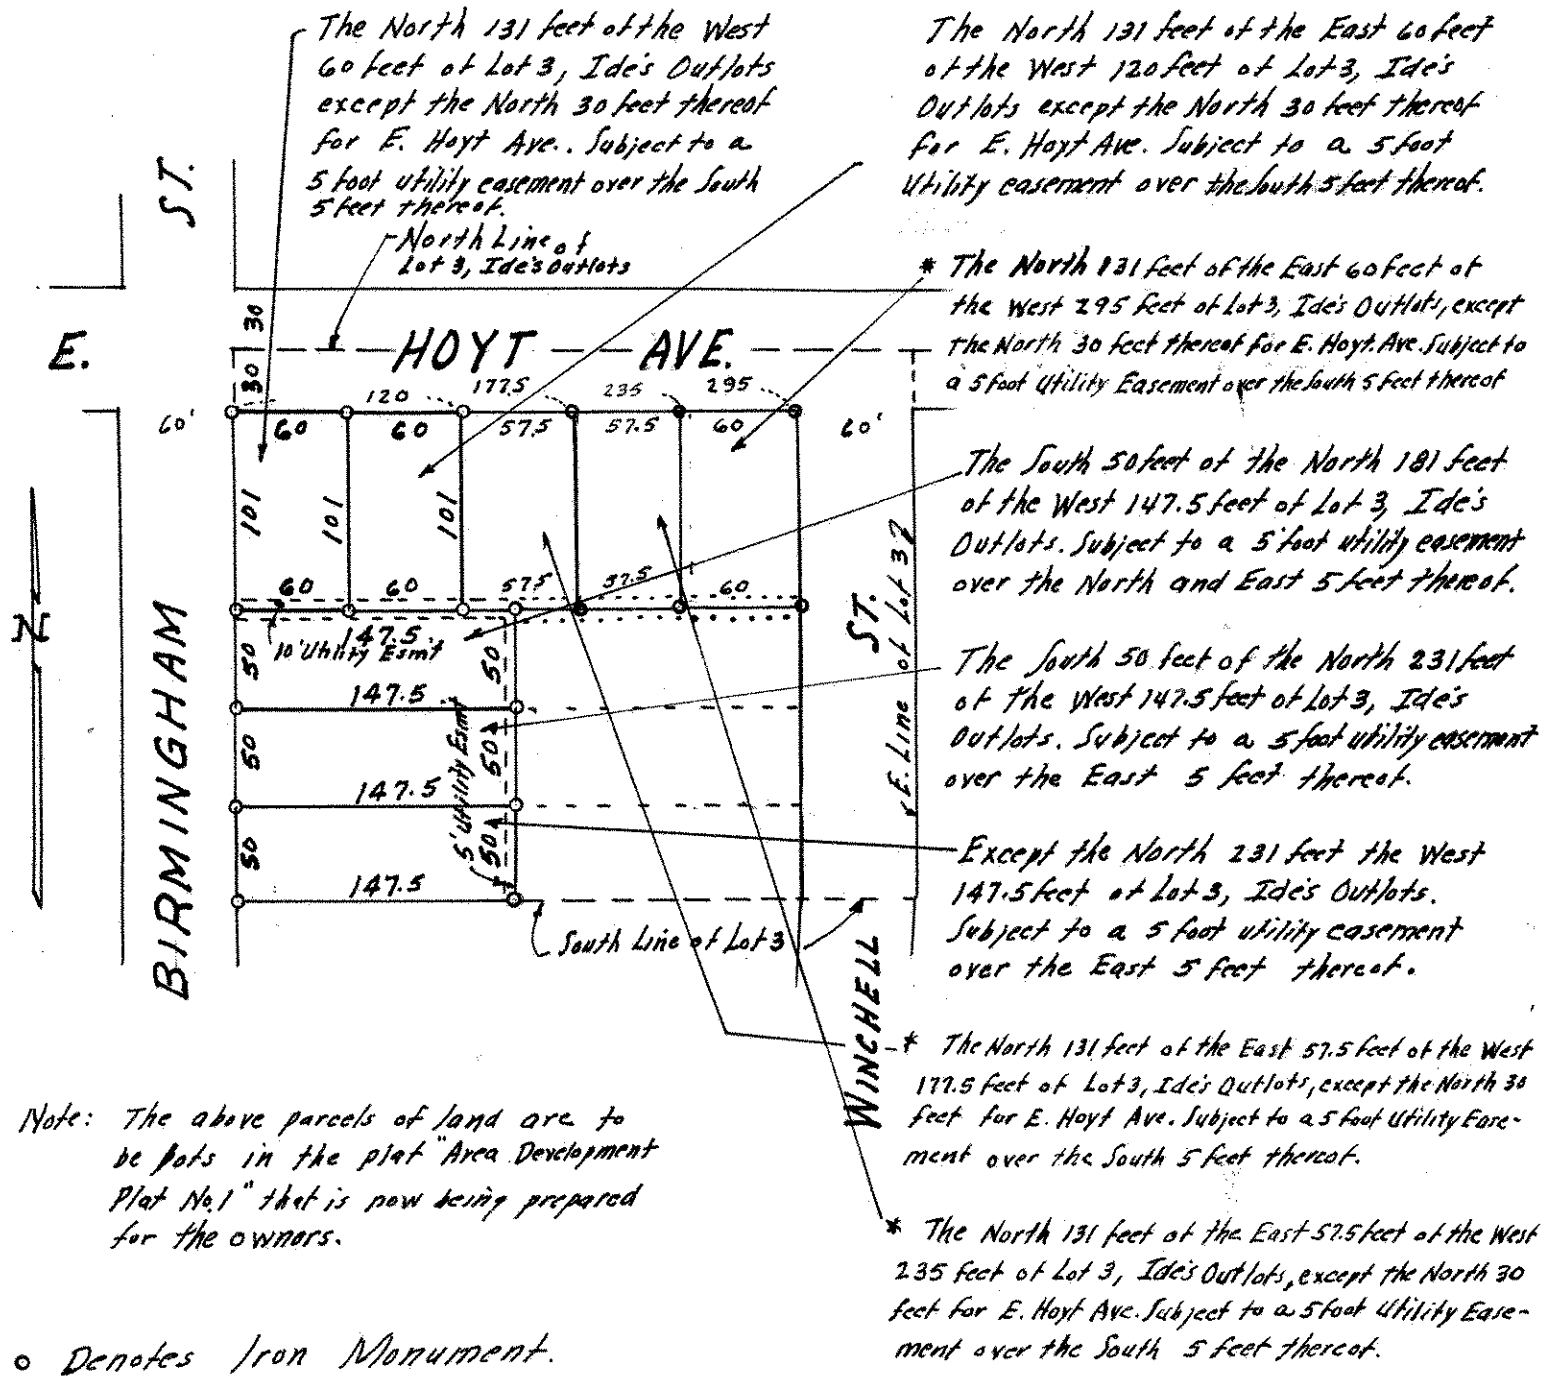 The North 131 feet of the West
60 feet of Lot 3, Ide's Outlots
except the North 30 feet thereof
for E. Hoyt Ave.. Subject to a
5 foot utility easement over the South
5 feet thereof.
North Line of
Lot 3, Ide's Outlots
The North 131 feet of the East 60 feet
of the West 120 feet of Lot 3, Ide's
Outlots except the North 30 feet thereof
for E. Hoyt Ave. Subject to a 5 foot
Utility easement over the South 5 feet thereof.
* The North 131 feet of the East 60 feet of
the West 295 feet of Lot 3, Ide's Outlots, except
the North 30 feet thereof for E. Hoyt. Ave. Subject to
a 5 foot Utility Easement over the South 5 feet thereof
The South 50 feet of the North 181 feet
of the West 147.5 feet of Lot 3, Ide's
Outlots. Subject to a 5 foot utility easement
over the North and East 5 feet thereof.
The South 50 feet of the North 231 feet
of the West 147.5 feet of Lot 3, Ide's
Outlots. Subject to a 5 foot utility easement
over the East 5 feet thereof.
Except the North 231 feet the West
147.5 feet of Lot 3, Ide's Outlots.
Subject to a 5 foot utility easement
over the East 5 feet thereof.
* The North 131 feet of the East 57.5 feet of the West
177.5 feet of Lot 3, Ide's Outlots, except the North 30
feet for E. Hoyt Ave. Subject to a 5 foot Utility Ease-
ment over the South 5 feet thereof.
* The North 131 feet of the East 57.5 feet of the West
235 feet of Lot 3, Ide's Outlots, except the North 30
feet for E. Hoyt Ave. Subject to a 5 foot Utility Ease-
ment over the South 5 feet thereof.
ST.
E. HOYT AVE.
30
30
120 177.5 235 295
60' 60 60 57.5 57.5 60 60'
101 101 101
60 60 57.5 57.5 60
147.5
10' Utility Esmt
50 50
147.5
50 50
147.5
50 50
147.5
5' Utility Esmt
South Line of Lot 3
E. Line of Lot 3
N
BIRMINGHAM
WINCHELL ST.
Note: The above parcels of land are to
be lots in the plat "Area Development
Plat No.1" that is now being prepared
for the owners.
o Denotes Iron Monument.